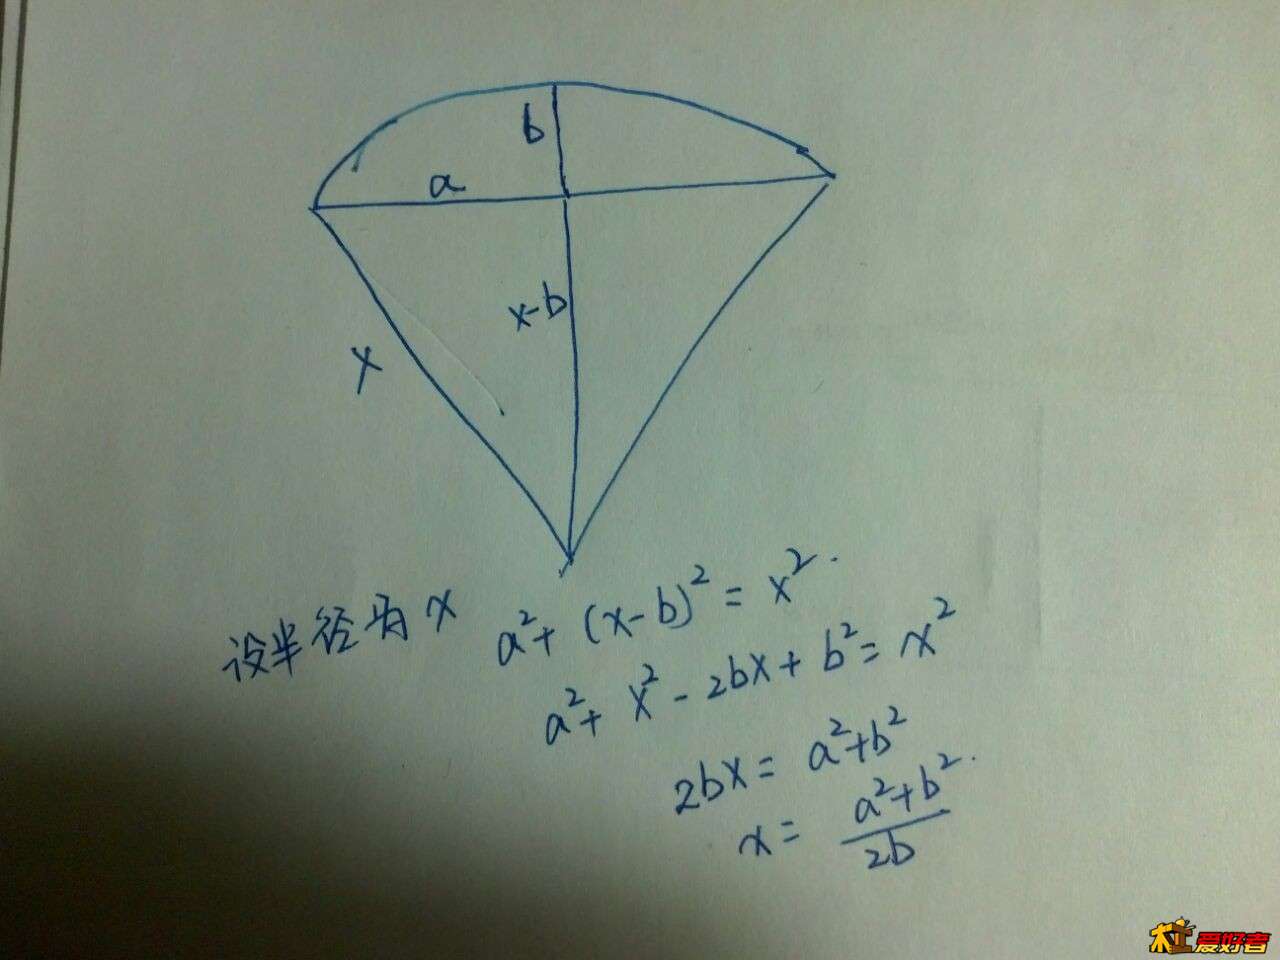 b
a
x-b
x
设半径为x a²+(x-b)²=x².
a²+x²-2bx+b²=x²
2bx=a²+b²
x=\frac{a²+b²}{2b}.
爱好者